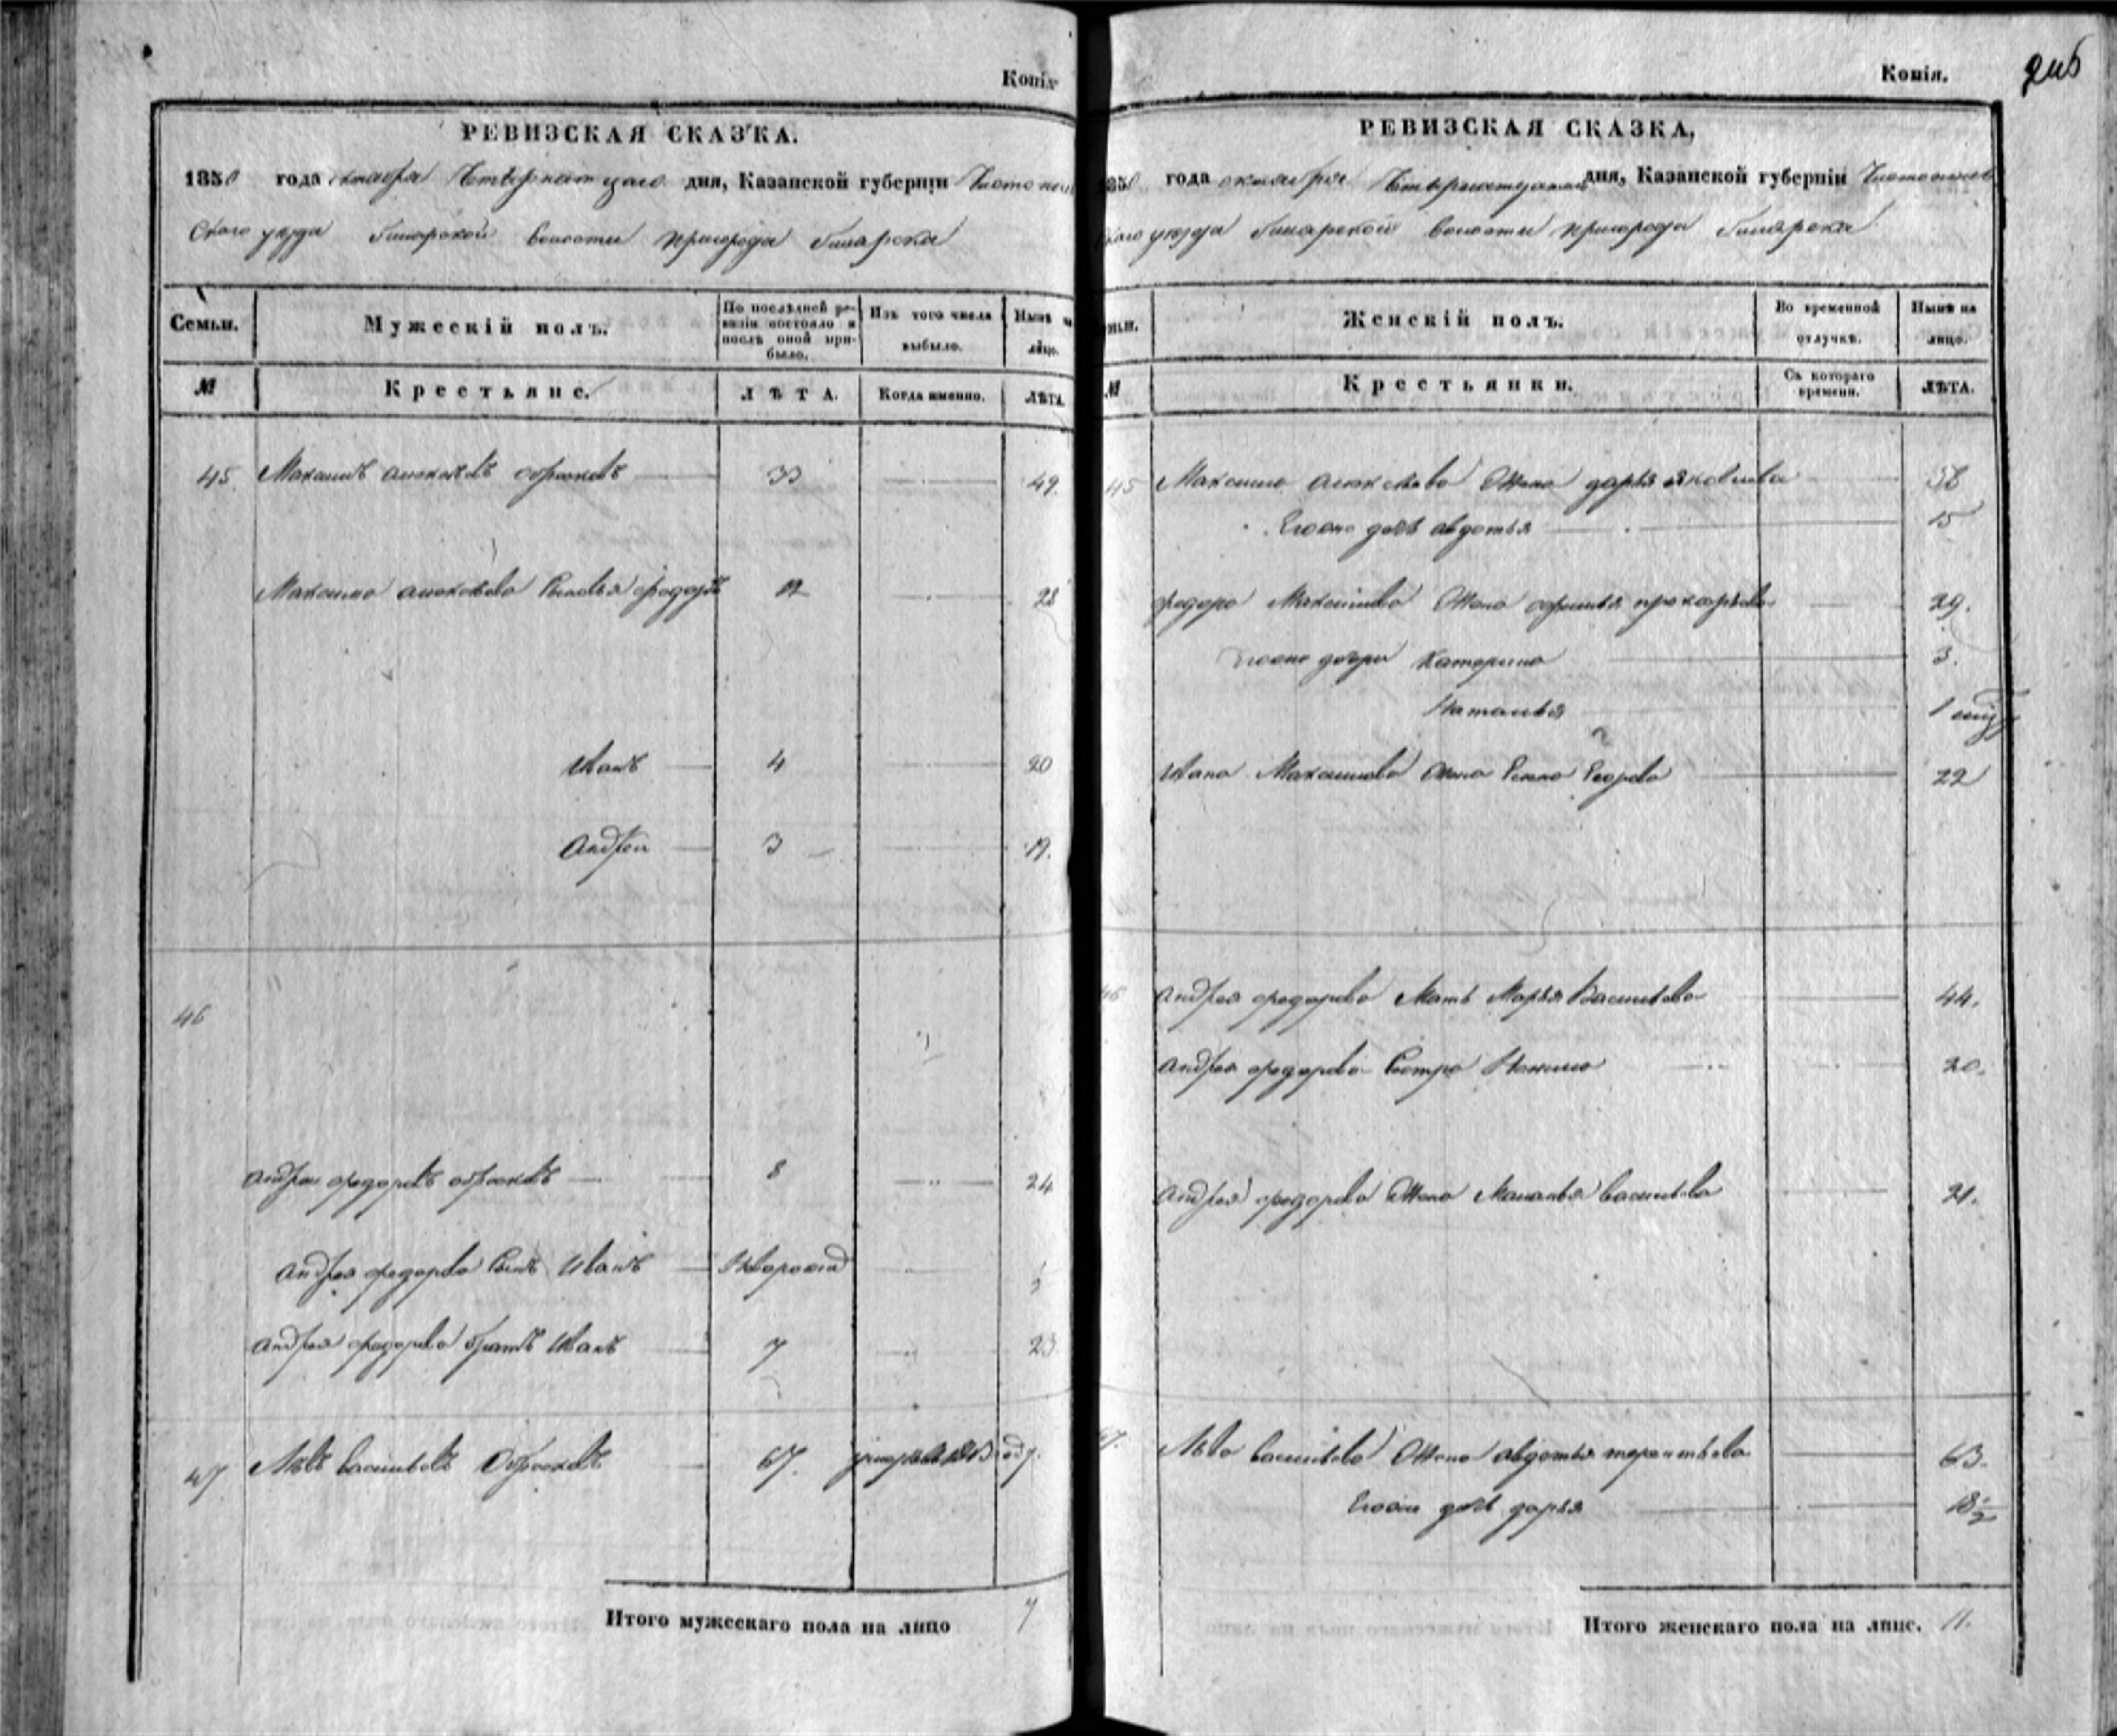 Копія
РЕВИЗСКАЯ СКАЗКА.
1850 года октября Четырнатцаго дня, Казанской губерніи Чистополь
скаго уезда Билярской волости пригорода Билярска
Семьи.
Мужескій полъ.
По послѣдней ревизіи состояло и послѣ оной прибыло.
Изъ того числа выбыло.
Нынѣ на лицо.
№
Крестьяне.
ЛѢТА.
Когда именно.
ЛѢТА
45 Максимъ алексѣевъ 33 49.
Максима алексѣева Сыновья федоръ 12 28
Иванъ 4 20
Андрей 3 19.
46
Андрей федоровъ 8 24
Андрея федорова Сынъ Иванъ Новорожд
Андрея федорова братъ Иванъ 7 23
47 Левъ васильевъ 67.
Итого мужескаго пола на лицо 7
Копія.
РЕВИЗСКАЯ СКАЗКА,
1850 года октября Четырнатцаго дня, Казанской губерніи Чистополь
скаго уезда Билярской волости пригорода Билярска
Женскій полъ.
Во временной отлучкѣ.
Нынѣ на лицо.
№
Крестьянки.
Съ котораго времени.
ЛѢТА.
45 Максима алексѣева Жена дарья яковлева
Его дочь авдотья 15
федора Максимова Жена 29.
дочери Катерина 3.
Наталья 1
Ивана Максимова Жена Егорова 22
46 Андрея федорова Мать Марья Васильева 44.
Андрея федорова Сестра 20.
Андрея федорова Жена васильева 21.
47. Лева васильева Жена авдотья терентьева 63.
дочь дарья
Итого женскаго пола на лицо. 11.